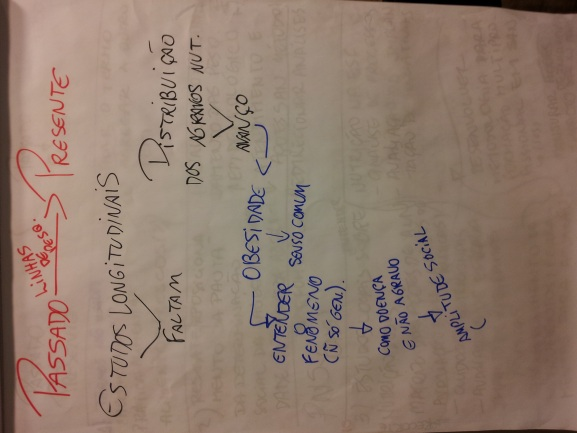 LINHAS
PASSADO → PRESENTE
ESTUDOS LONGITUDINAIS
FALTAM
DISTRIBUIÇÃO
DOS AGRAVOS NUT.
AVANÇO
OBESIDADE
SENSO COMUM
ENTENDER
O
FENÔMENO
(Ñ SÓ GEN).
COMO DOENÇA
E NÃO AGRAVO
AMPLITUDE SOCIAL